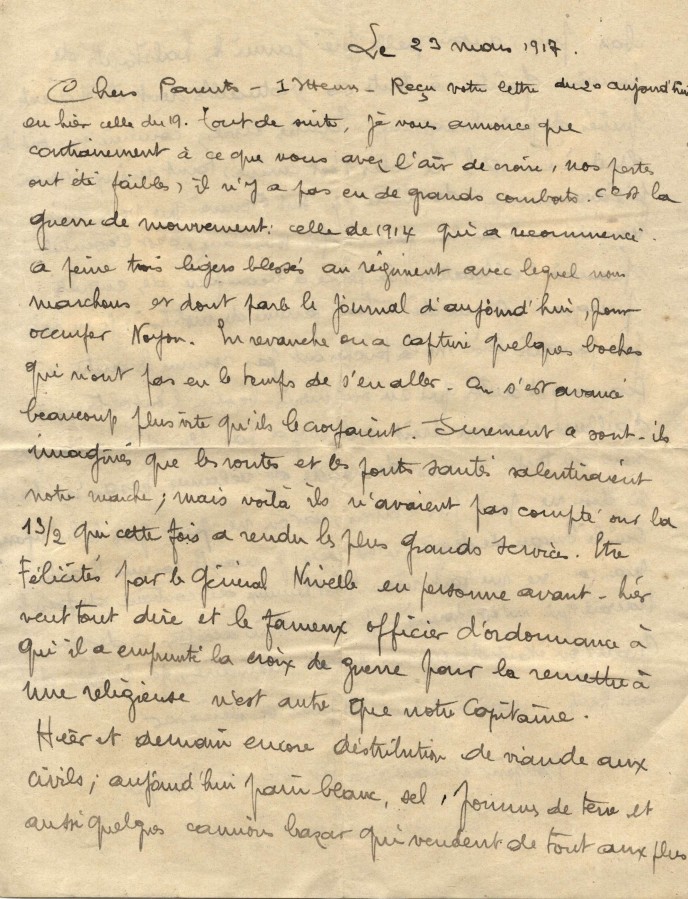 Le 23 mars 1917.
Chers Parents - Recu votre lettre du 20 aujourd'hui
ou hier celle du 19. Tout de suite, je vous annonce que
contrairement à ce que vous avez l'air de croire, nos pertes
ont été faibles, il n'y a pas eu de grands combats. C'est la
guerre de mouvement: celle de 1914 qui a recommencé.
A peine trois légers blessés au régiment avec lequel nous
marchons et dont parle le journal d'aujourd'hui, pour
occuper Noyon. En revanche on a capturé quelques boches
qui n'ont pas eu le temps de s'en aller. On s'est avancé
beaucoup plus vite qu'ils le croyaient. Surement se sont-ils
imaginés que les routes et les ponts sautés ralentiraient
notre marche; mais voilà ils n'avaient pas compté sur la
13/2 qui cette fois a rendu les plus grands services. Etre
Félicités par le Général Nivelle en personne avant-hier
veut tout dire et le fameux officier d'ordonnance à
qui il a emprunté la croix de guerre pour la remettre à
une religieuse n'est autre que notre Capitaine.
Hier et demain encore distribution de viande aux
civils; aujourd'hui pain blanc, sel, pommes de terre et
aussi quelques camions bazar qui vendent de tout aux plus